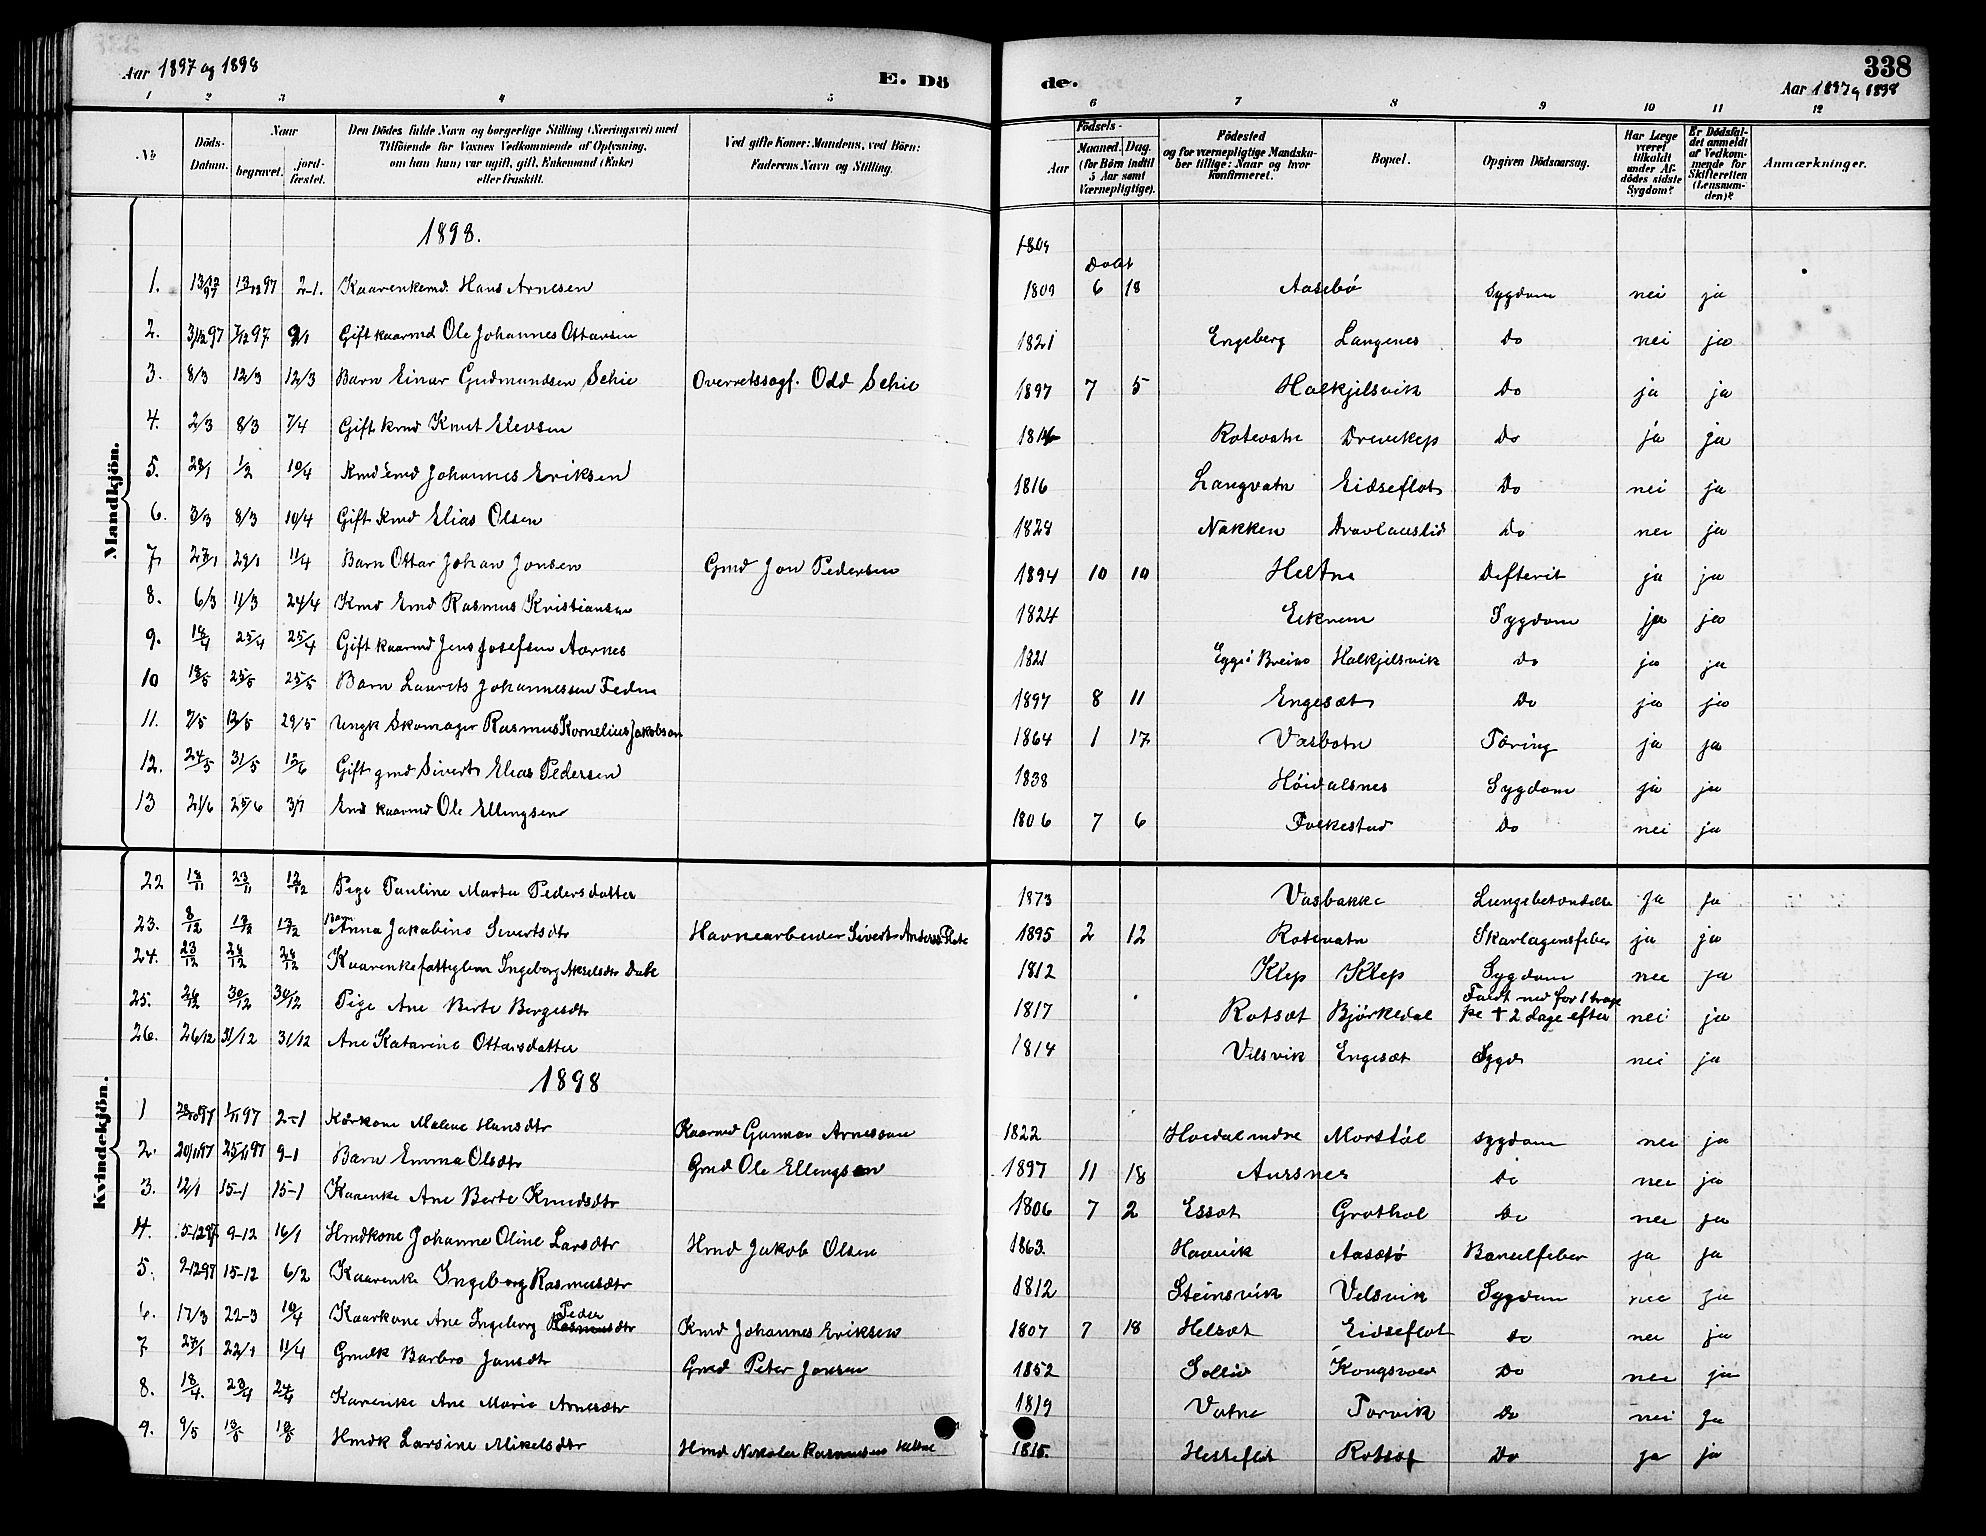 Aar 1897 og 1898
E. Dö
de.
338
Aar 1897 og 1898
1 2 3 4 5 6 7 8 9 10 11 12
No
Döds-Datum.
Naar
begravet.
jord-fæstet.
Den Dödes fulde Navn og borgerlige Stilling (Næringsvei) med
Tilföiende for Voxnes Vedkommende af Oplysning,
om han (hun) var ugift, gift, Enkemand (Enke)
eller fraskilt.
Ved gifte Koner: Mandens, ved Börn:
Faderens Navn og Stilling.
Födsels-
Aar
Maaned. Dag.
(for Börn indtil 5 Aar samt Værnepligtige).
Födested
og for værnepligtige Mandska-
ber tillige: Naar og hvor
konfirmeret.
Bopæl.
Opgiven Dödsaarsag.
Har Læge været tilkaldt under Af-dödes sidste Sygdom?
Er Dödsfal-det anmeldt af Vedkom-mende for Skifteretten (Lensman-den)?
Anmærkninger.
Mandkjön.
1898.
1809
Dobt
1. 13/12 97 13/12 97 2-1. Kaarenkemd. Hans Arnesen 1809 6 18 Aasebö Sygdom nei ja
2. 3/12 97 7/12 97 9/1 Gift kaarmd Ole Johannes Ottarsen 1821 Engeberg Langenes Do nei ja
3. 8/3 12/3 12/3 Barn Einar Gudmundsen Schie Overretssagf. Odd Schie 1897 7 5 Halkjelsvik Do ja ja
4. 2/3 8/3 7/4 Gift kmd Knut Elevsen Rotevatn Do ja ja
5. 28/1 1/2 10/4 Kmd Emd Johannes Eriksen 1816 Langvatn Eidseflot Do nei ja
6. 3/3 8/3 10/4 Gift Kmd Elias Olsen 1828 Nakken Dravlauslid Do nei ja
7. 27/1 29/1 11/4 Barn Ottar Johan Jonsen Gmd Jon Pedersen 1894 10 10 Heltne Defterit ja ja
8. 6/3 11/3 24/4 Kmd Emd Rasmus Kristiansen 1824 Eiknem Sygdom ja ja
9. 18/4 25/4 25/4 Gift kaarmd Jens Josefsen Aarnes 1821 Egge i Breim Halkjelsvik do ja ja
10 18/5 25/5 25/5 Barn Laurits Johannessen 1897 8 11 Engesæt Do ja ja
11. 7/5 12/5 29/5 Ungk Skomager Rasmus Kornelius Jakobsen 1864 1 17 Vasbotn Tæring ja ja
12. 24/5 31/5 15/6 Gift gmd Sivert Elias Pedersen 1838 Höidalsnes Sygdom ja ja
13 21/6 25/6 3/7 Emd kaarmd Ole Ellingsen 1806 7 6 Folkestad Do nei ja
Kvindekjön.
22 18/11 23/11 12/12 Pige Pauline Marta Pedersdatter 1873 Vasbakke Lungebetændelse ja ja
23. 8/12 Barn Anna Jakobine Sivertsdtr Havnearbeider Sivert Anders. Flote 1895 2 12 Rotevatn Skarlagensfeber ja ja
24. 23/12 28/12 28/12 Kaarenkefattiglem Ingeborg Akselsdtr Dale 1812 Klep Klep Sygdom nei ja
25. 26/12 30/12 30/12 Pige Ane Berte Borgesdtr 1817 Rotsæt Björkedal Faldt ned for 1 trap
pe + 2 Dage efter nei ja
26. 26/12 31/12 31/12 Ane Katarine Ottarsdatter 1814 Velsvik Engesæt Sygd nei ja
1898
1 28/10 97 1/11 97 2-1 Kårkone Malene Hansdtr Kaarmd Gunnar Arnessen 1822 Höidal indre Morstöl sygdom nei ja
2. 20/11 97 25/11 97 9-1 Barn Emma Olsdtr Gmd Ole Ellingsen 1897 11 18 Aursnes do nei ja
3. 12/1 15-1 15-1 Karenke Ane Berte Knudsdtr 1806 7 2 Essæt Grothol do nei ja
4. 5-12 97. 9-12 16/1 Hmdkone Johanne Oline Larsdtr Hmd Jakob Olsen 1863. Haavik Aasetö Barselfeber ja ja
5. 15-12 6/2 Kaarenke Ingeborg Rasmusdtr 1812 Steinsvik Velsvik Sygdom nei ja
6. 17/3 22-3 10/4 Kaarkone Ane Ingeborg Peder Rasmusdtr Kmd Johannes Eriksen 1807 7 18 Helset Eidseflot do nei ja
7 27/1 22/1 11/4 Gmdk Barbro Jansdtr Gmd Peter Jonsen 1852 Sollid Kongsvold Do nei ja
8. 18/4. 23/4 24/4 Karenke Ane Marie Arnesdtr 1819 Vatne Torvik Do nei ja
9. 9/5 Hmdk Larsine Mikelsdtr Hmd Nikolai Rasmussen Heltne 1815. Hesteflot Rotset Do ja ja